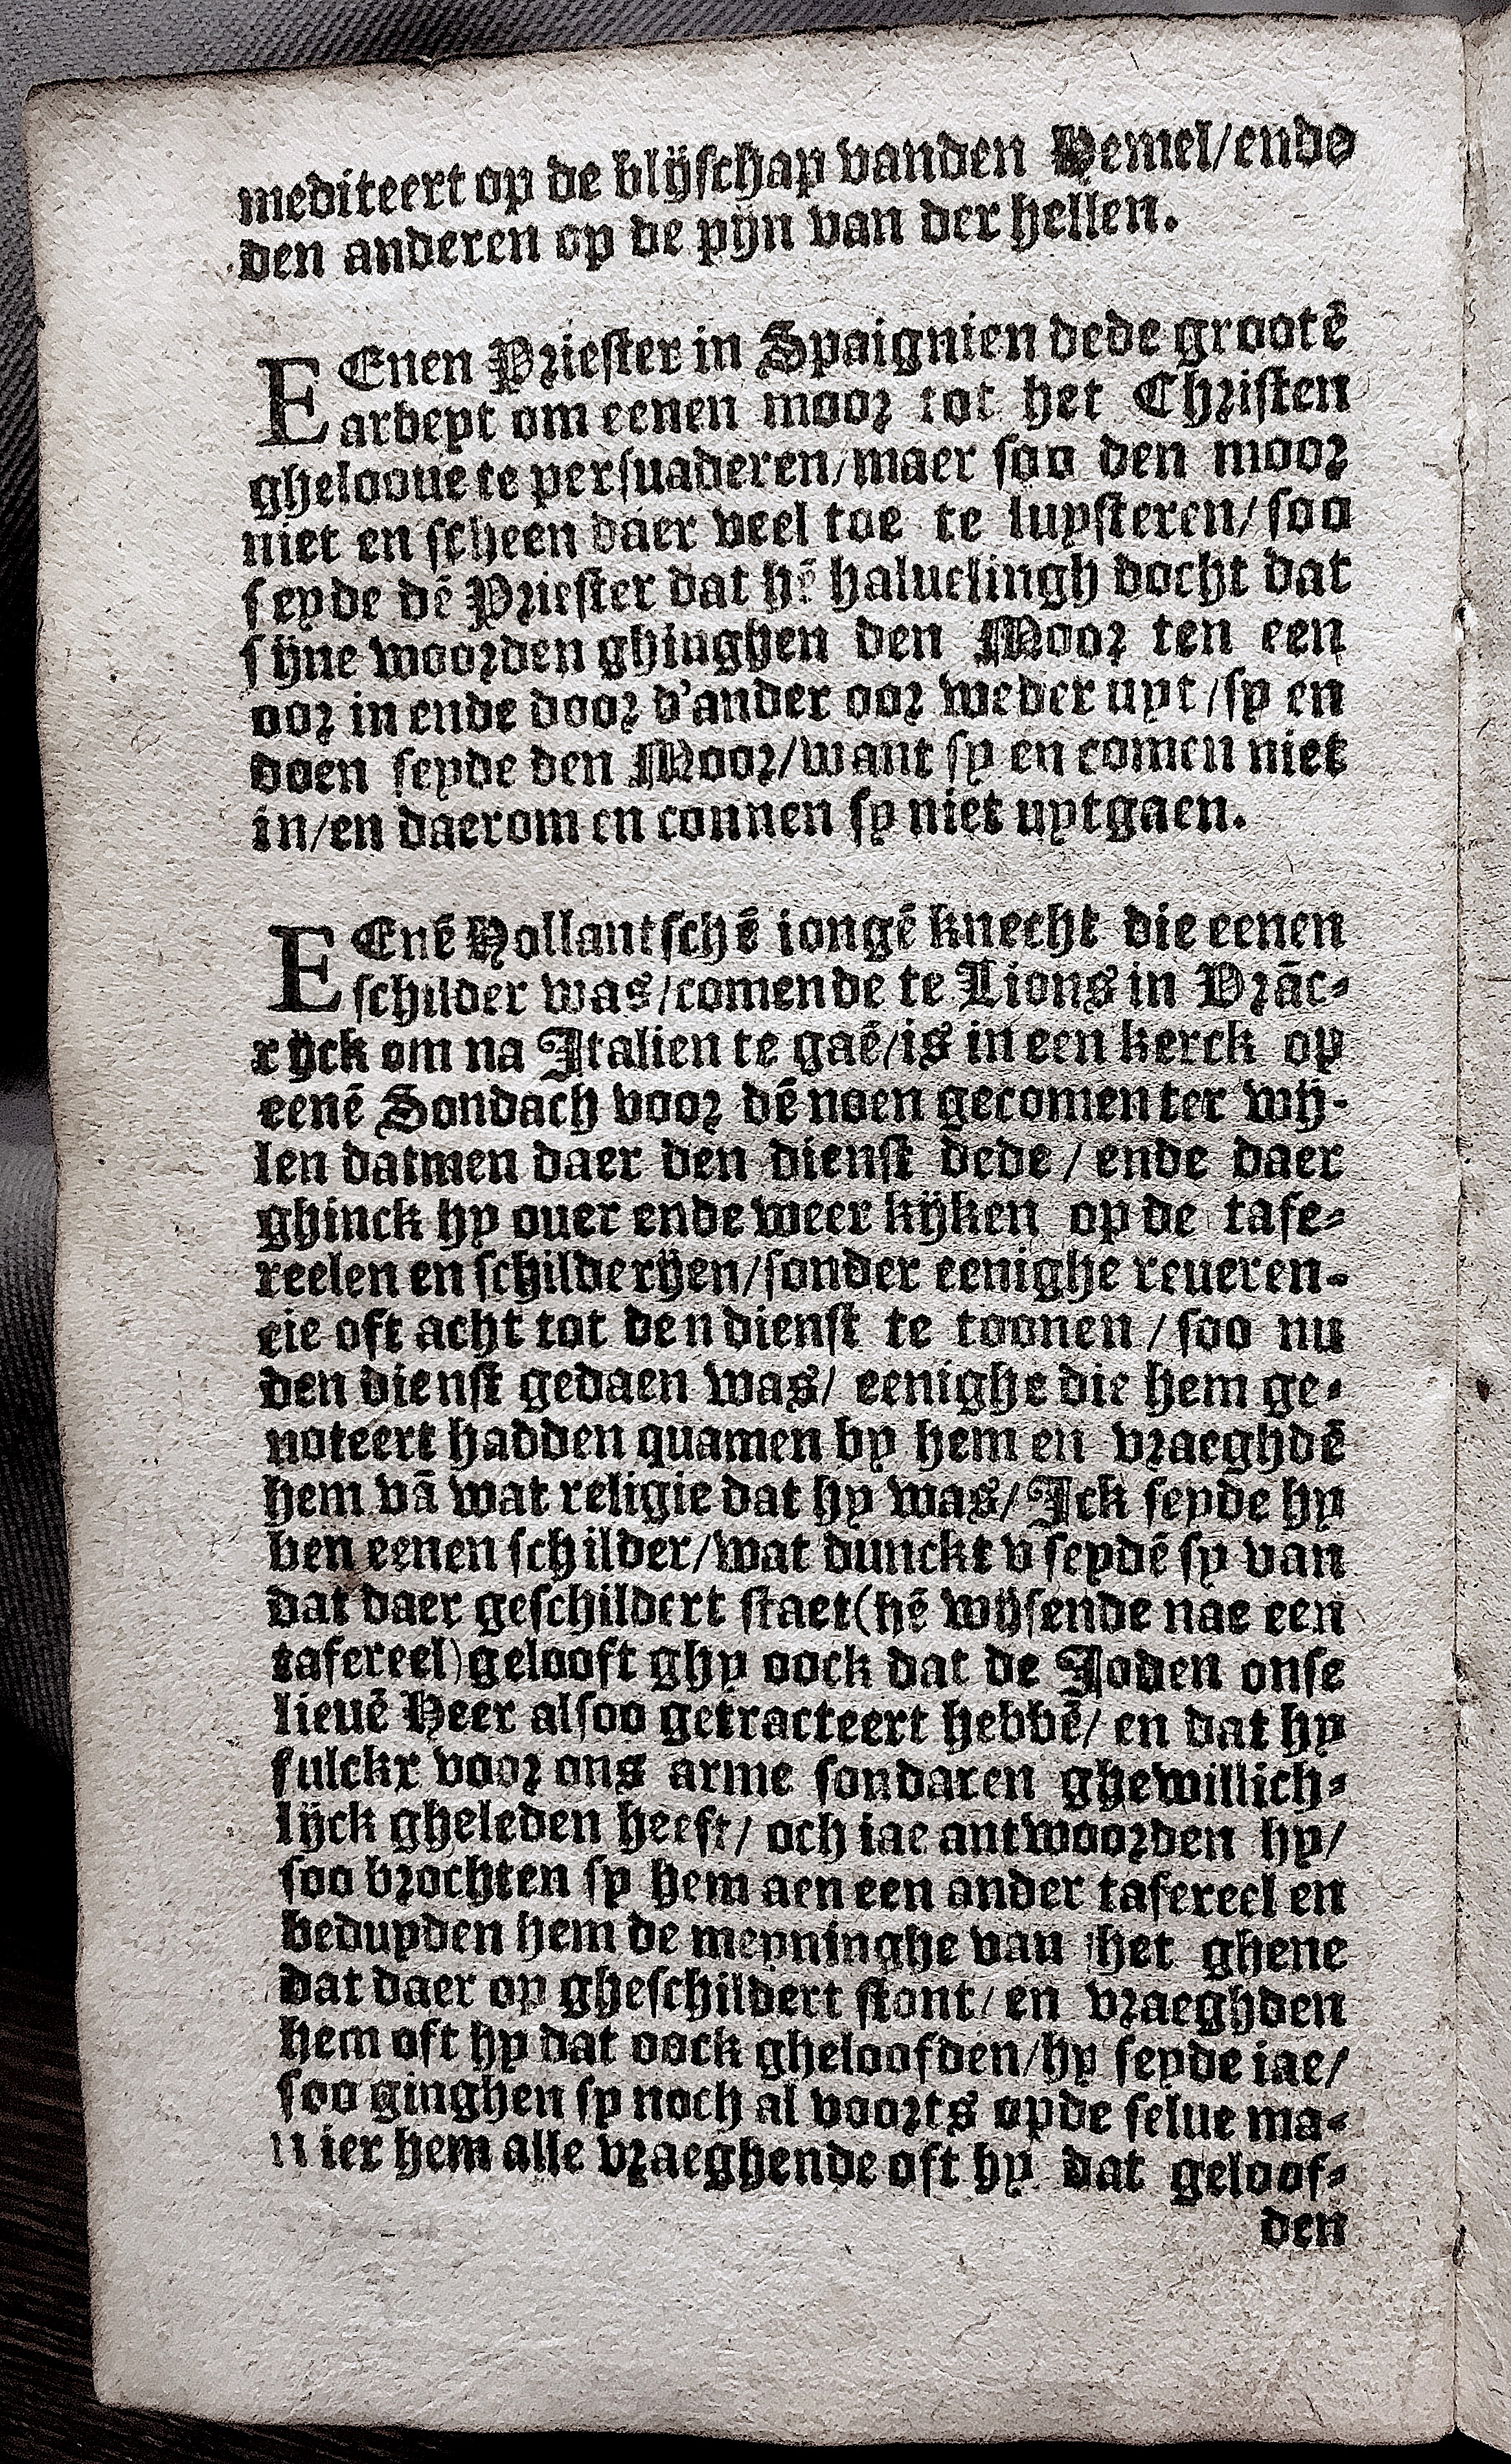 mediteert op de blijschap vanden Hemel/ende
den anderen op de pijn van der hellen.
EEnen Priester in Spaignien dede grootē
arbeyt om eenen moor tot het Christen
ghelooue te persuaderen/maer soo den moor
niet en scheen daer veel toe te luysteren/soo
seyde dē Priester dat hē haluelingh docht dat
sijne woorden ghinghen den Moor ten een
oor in ende door d'ander oor weder uyt/sy en
doen seyde den Moor/want sy en comen niet
in/en daerom en connen sy niet uytgaen.
EEnē Hollantschē iongē knecht die eenen
schilder was/comende te Lions in Vrāc-
rijck om na Italien te gaē/is in een kerck op
eenē Sondach voor dē noen gecomen ter wij-
len datmen daer den dienst dede/ende daer
ghinck hy ouer ende weer kijken op de tafe-
reelen en schilderijen/sonder eenighe reueren-
cie oft acht tot den dienst te toonen/soo nu
den dienst gedaen was/ eenighe die hem ge-
noteert hadden quamen by hem en vraeghdē
hem vā wat religie dat hy was/Ick seyde hy
ben eenen schilder/wat dunckt v seydē sy van
dat daer geschildert staet(hē wijsende nae een
tafereel)gelooft ghy oock dat de Joden onse
lieuē Heer alsoo getracteert hebbē/ en dat hy
sulckx voor ons arme sondaren ghewillich-
lijck gheleden heeft/ och iae antwoorden hy/
soo brochten sy hem aen een ander tafereel en
beduyden hem de meyninghe van het ghene
dat daer op gheschildert stont/en vraeghden
hem oft hy dat oock gheloofden/hy seyde iae/
soo ginghen sy noch al voorts opde selue ma-
nier hem alle vraeghende oft hy dat geloof-
den